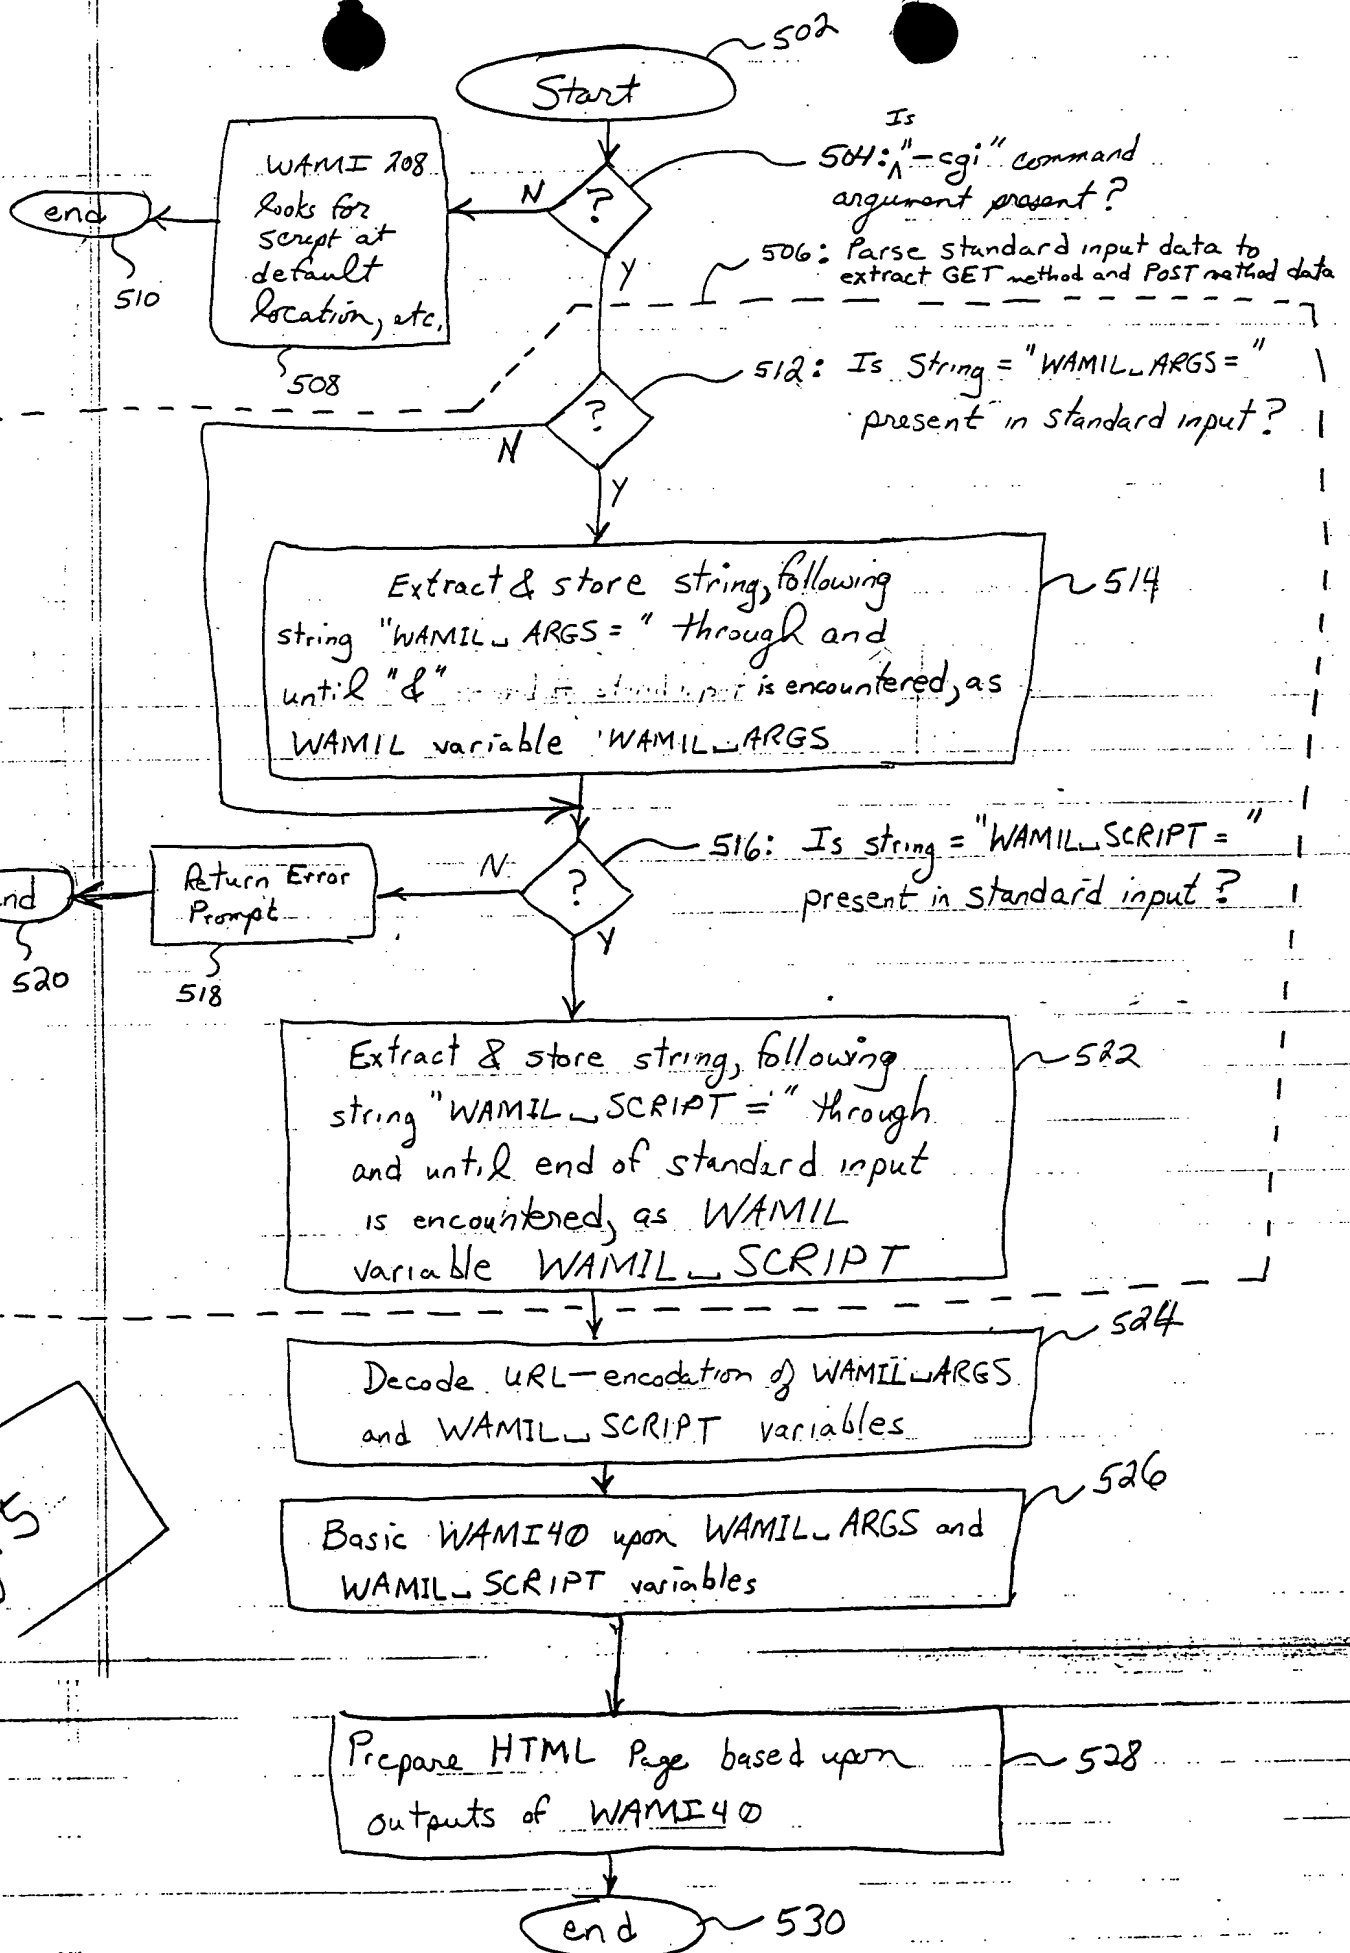 502
Start
Is
504: ^ "-cgi" command
argument present?
WAMI 208
looks for
script at
default
location, etc.
N
?
end
510
508
Y
506: Parse standard input data to
extract GET method and POST method data
512: Is String = "WAMIL_ARGS="
present in standard input?
?
N
Y
Extract & store string, following
string "WAMIL_ARGS=" through and
until "&" is encountered, as
WAMIL variable WAMIL_ARGS
514
516: Is string = "WAMIL_SCRIPT="
present in standard input?
N
?
Y
Return Error
Prompt
nd
520
518
Extract & store string, following
string "WAMIL_SCRIPT=" through
and until end of standard input
is encountered, as WAMIL
variable WAMIL_SCRIPT
522
524
Decode URL-encodation of WAMIL_ARGS
and WAMIL_SCRIPT variables
526
Basic WAMI40 upon WAMIL_ARGS and
WAMIL_SCRIPT variables
5
Prepare HTML Page based upon
outputs of WAMI40
528
end
530